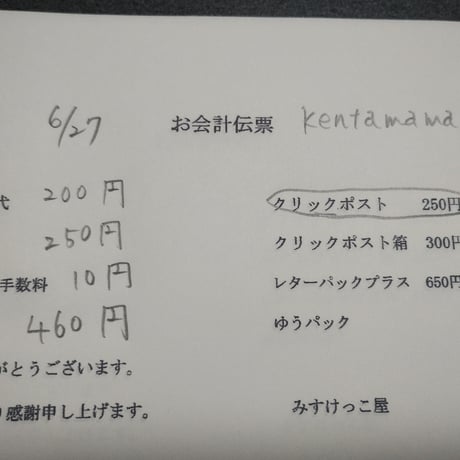 6/27 お会計伝票 kentamama
代 200円 クリックポスト 250円
250円 クリックポスト箱 300円
手数料 10円 レターパックプラス 650円
460円 ゆうパック
がとうございます。
り感謝申し上げます。 みすけっこ屋